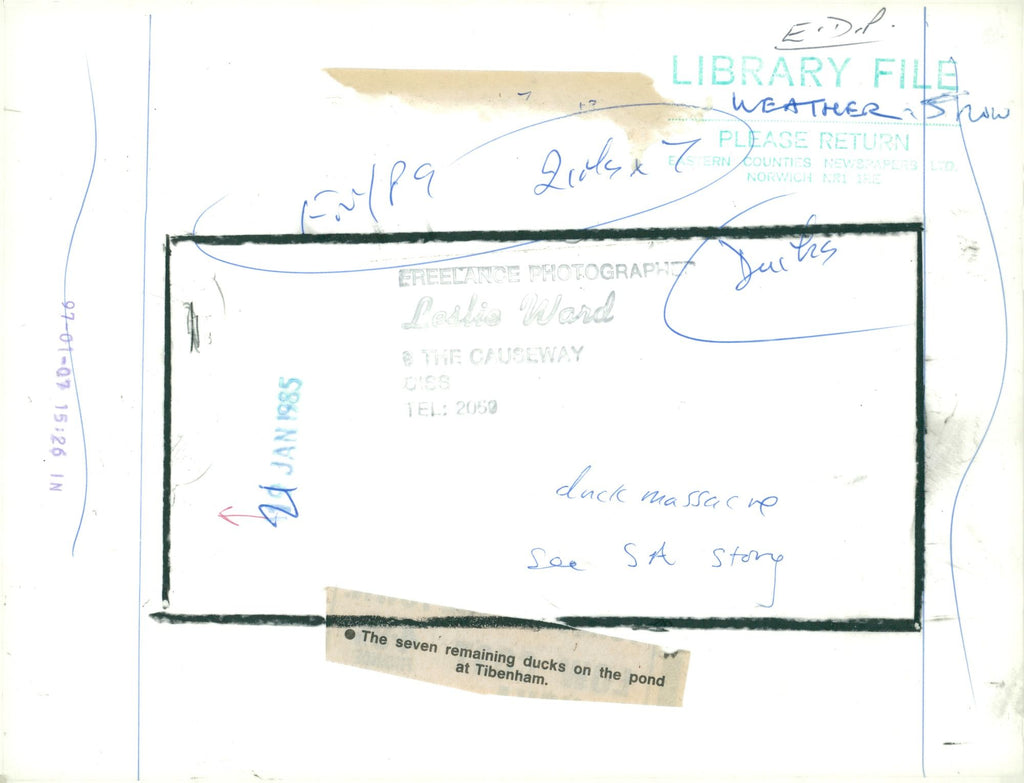 E.D.P.
LIBRARY FILE
WEATHER - Snow
PLEASE RETURN
EASTERN COUNTIES NEWSPAPERS LTD.
NORWICH NR1 1RE
Ducks
FREELANCE PHOTOGRAPHER
Leslie Ward
8 THE CAUSEWAY
DISS
TEL: 2050
JAN 1985
97-01-07 15:26 IN
duck massacre
see SA story
● The seven remaining ducks on the pond
at Tibenham.